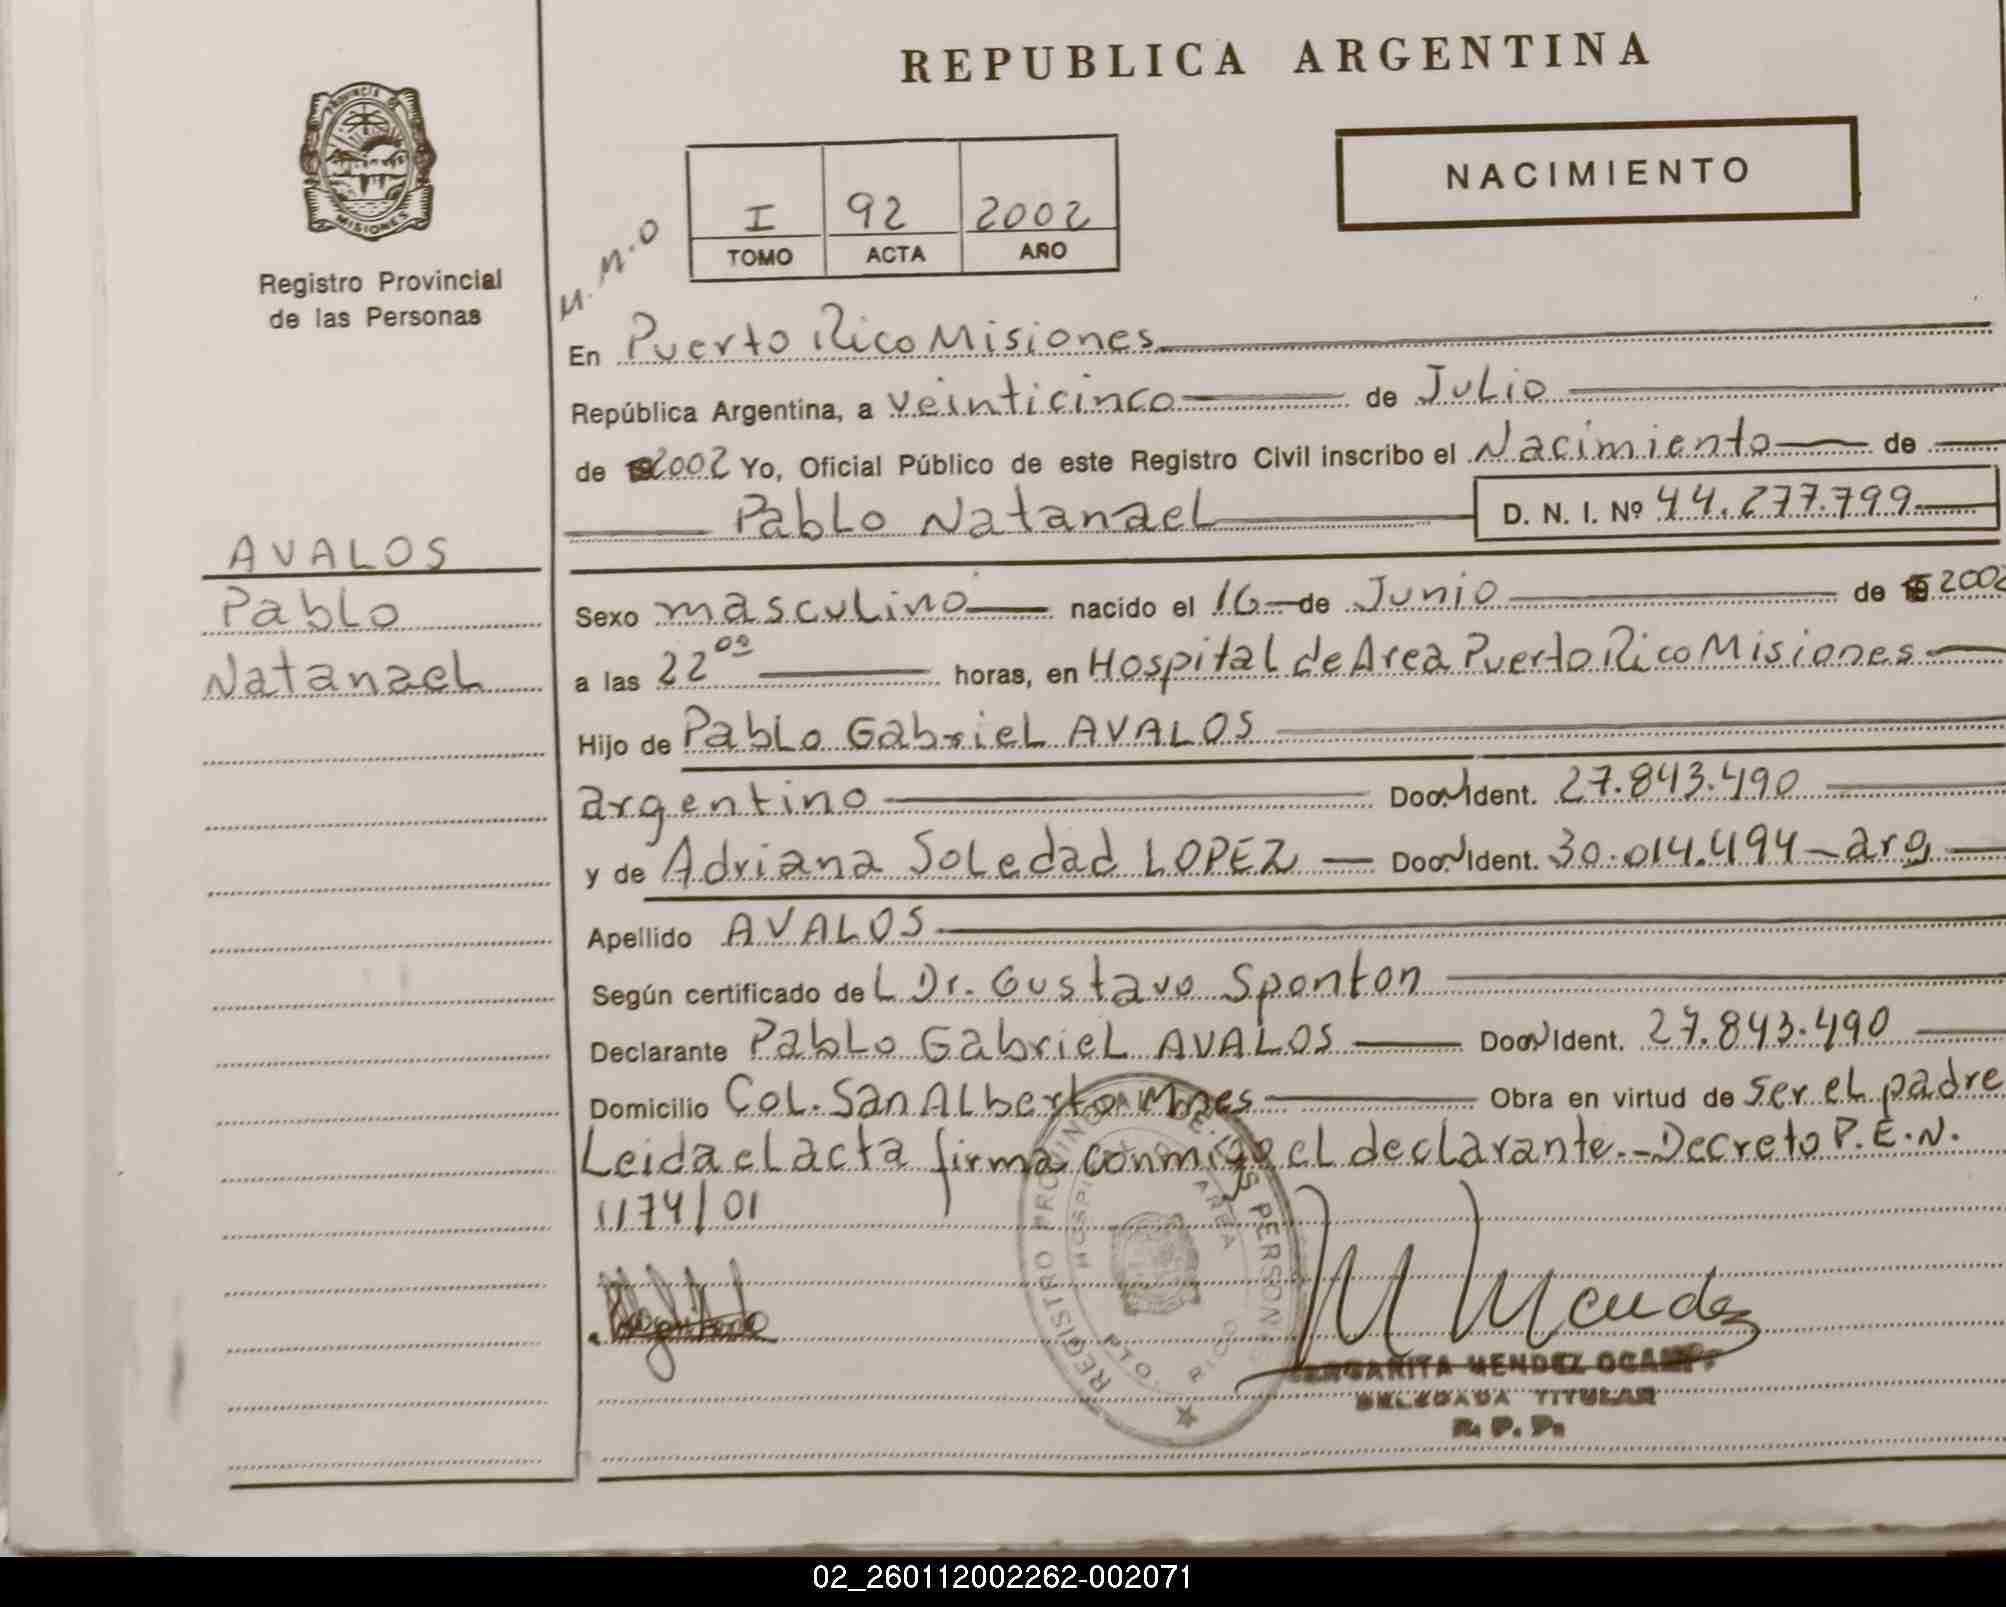 REPUBLICA ARGENTINA
NACIMIENTO
PROVINCIA DE
MISIONES
Registro Provincial
de las Personas
M.M.O
I 92 2002
TOMO ACTA AÑO
En Puerto Rico Misiones
República Argentina, a veinticinco de Julio
de 2002 Yo, Oficial Público de este Registro Civil inscribo el Nacimiento de
Pablo Natanael D. N. I. Nº 44.277.799
AVALOS
Pablo
Natanael
Sexo masculino nacido el 16 de Junio de 2002
a las 22 00 horas, en Hospital de Area Puerto Rico Misiones
Hijo de Pablo Gabriel AVALOS
argentino Ident. 27.843.490
y de Adriana Soledad LOPEZ Ident. 30.014.494 arg
Apellido AVALOS
Según certificado del Dr. Gustavo Sponton
Declarante Pablo Gabriel AVALOS Ident. 27.843.490
Domicilio Col. San Alberto Mnes Obra en virtud de ser el padre
Leida el acta firma conmigo el declarante.-Decreto P.E.N.
1174/01
REGISTRO PROVINCIAL DE LAS PERSONAS
HOSPITAL AREA
PTO. RICO
M Mendez
MARGARITA MENDEZ OCAMPO
DELEGADA TITULAR
R. P. P.
02_260112002262-002071